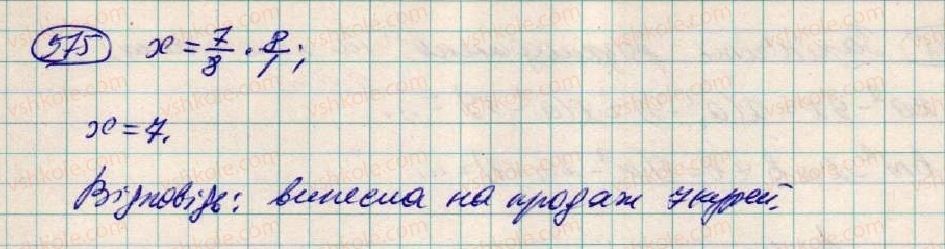 575 x = 7/8 · 8/1;
x = 7.
Відповідь: винесла на продаж 7 курей.